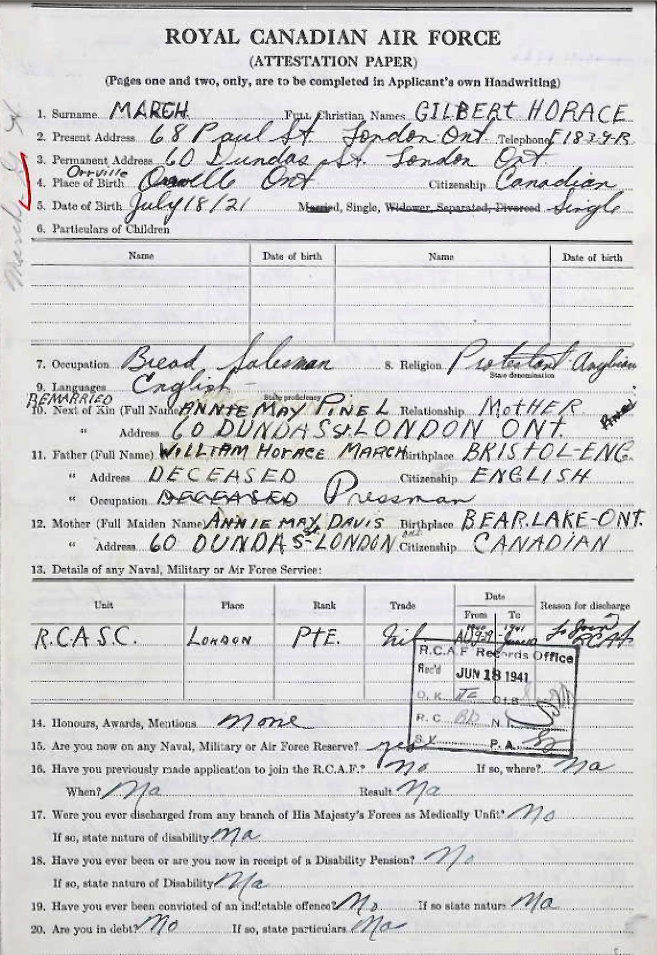 ROYAL CANADIAN AIR FORCE
(ATTESTATION PAPER)
(Pages one and two, only, are to be completed in Applicant's own Handwriting)
1. Surname MARCH Full Christian Names GILBERT HORACE
2. Present Address 68 Paul St. London Ont. Telephone F1839R
3. Permanent Address 60 Dundas St. London Ont
Orrville
4. Place of Birth Ont Citizenship Canadian
5. Date of Birth July 18/21 Married, Single, Widower, Separated, Divorced Single
6. Particulars of Children
Name Date of birth Name Date of birth
7. Occupation Bread Salesman 8. Religion Protestant Anglican
State denomination
9. Languages English
State proficiency
REMARRIED
10. Next of Kin (Full Name) ANNIE MAY PINEL Relationship MOTHER
" Address 60 DUNDAS St LONDON ONT.
11. Father (Full Name) WILLIAM HORACE MARCH Birthplace BRISTOL-ENG.
" Address DECEASED Citizenship ENGLISH
" Occupation DECEASED Pressman
12. Mother (Full Maiden Name) ANNIE MAY DAVIS Birthplace BEAR LAKE-ONT.
" Address 60 DUNDAS St-LONDON ONT. Citizenship CANADIAN
13. Details of any Naval, Military or Air Force Service:
Unit Place Rank Trade Date From To Reason for discharge
R.C.A.S.C. LONDON PTE. Nil 1940 1941 To Join RCAF
R.C.A.F Records Office
Rec'd JUN 18 1941
O.K.
R.C. N.
S.X. P.A.
14. Honours, Awards, Mentions None
15. Are you now on any Naval, Military or Air Force Reserve? yes
16. Have you previously made application to join the R.C.A.F.? No If so, where? Na
When? Na Result Na
17. Were you ever discharged from any branch of His Majesty's Forces as Medically Unfit? No
If so, state nature of disability Na
18. Have you ever been or are you now in receipt of a Disability Pension? No
If so, state nature of Disability Na
19. Have you ever been convicted of an indictable offence? No If so state nature Na
20. Are you in debt? No If so, state particulars Na